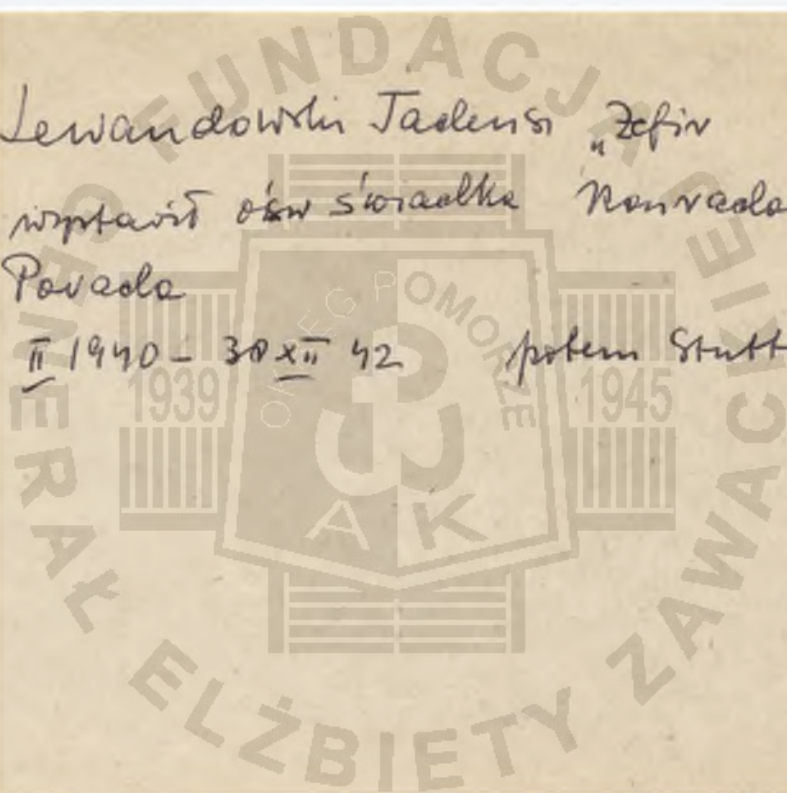 Lewandowski Tadeusz „Zefir
wystawił ośw świadka Konrada
Powada
II 1940 – 30 XII 42 potem Stutt
FUNDACJA GENERAŁ ELŻBIETY ZAWACKIEJ
OKRĘG POMORZE
1939
1945
AK